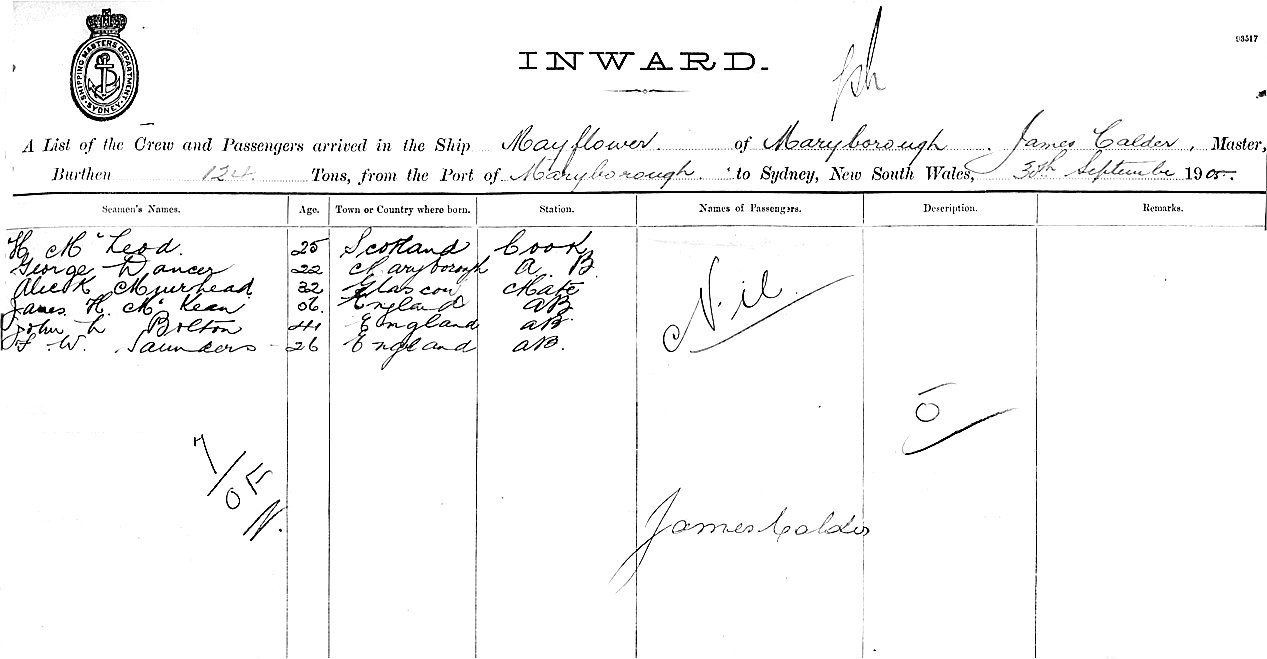 SHIPPING MASTERS DEPARTMENT SYDNEY
93517
INWARD.
A List of the Crew and Passengers arrived in the Ship Mayflower of Maryborough. James Calder, Master,
Burthen 124 Tons, from the Port of Maryborough. to Sydney, New South Wales, 30th September 1905
Seamen's Names. Age. Town or Country where born. Station. Names of Passengers. Description. Remarks.
H McLeod. 25 Scotland Cook
George Dancer 22 Maryborough A.B.
Alick Muirhead 32 Glascow Mate
James H. McKean 56. England AB
John L Bolton 41 England AB
F W. Saunders 26 England AB.
Nil.
0
7/0F
N.
James Calder